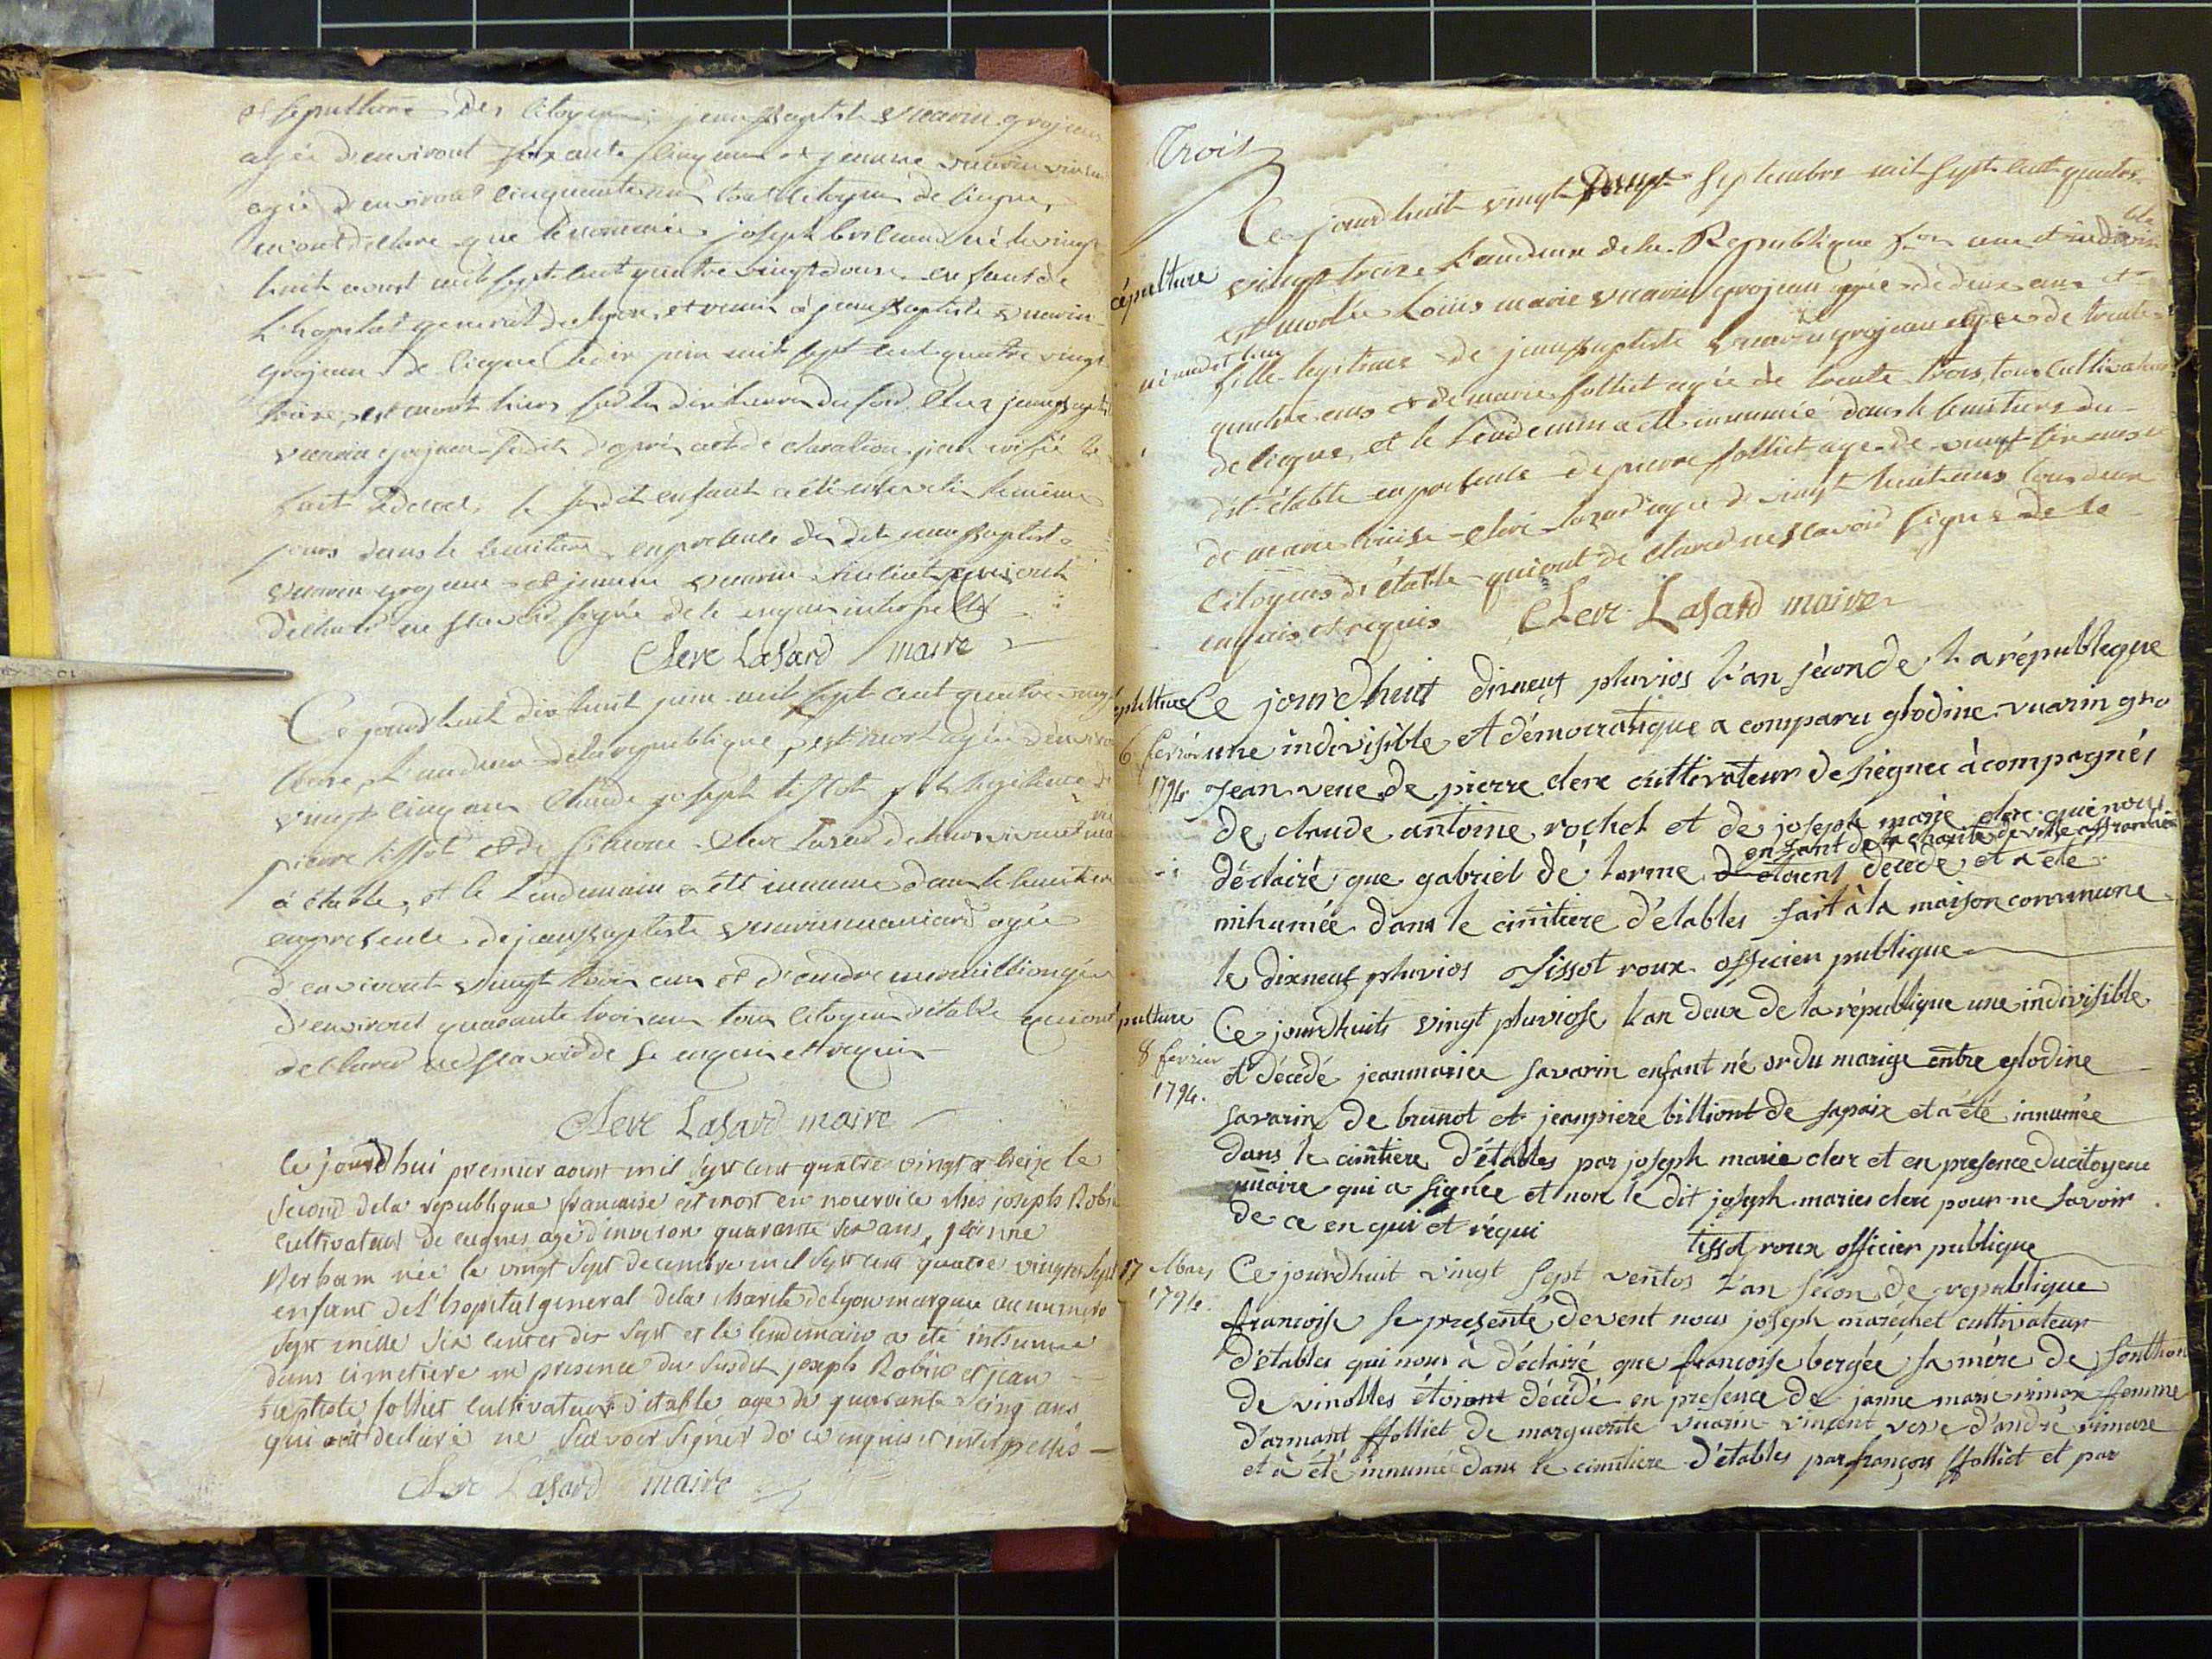 et sepulture des citoyens jean Baptiste vuarin grojean
agée d'environt soixante cinq ans et jeanne vuarin vincent
agée d'environt cinquante ans tous citoyen de
m'ont declare que le nommée joseph né le vingt
huit aoust mil sept cent quatre vingt douze enfant de
L'hopital general de lyon, et remis à jean Baptiste vuarin
grojean de le dix juin mil sept cent quatre vingt
treize, est mort hier sur les dix heures du soir chez jean Baptiste
vuarin grojean susdit d'apres cette declaration je me
fait le susdit enfant a été le même
jours dans le cemitiere en presence du dit jean Baptiste
vuarin grojean et jeanne vuarin qui ont
declaré ne scavoir signée de le enquis interpellé
Clerc Lasard maire
Ce jourd'huit dix huit juin mil sept cent quatre vingt
treze, L'an deux de la republique, est mort agée d'environ
vingt cinq ans Claude joseph tissot fils legitime de
pierre tissot et de Clerc Lasard de leurs vivant
à étable, et le Lendemain a été innume dans le cemitiere
en presence de jean Baptiste vuarin agée
d'environt vingt trois ans et d'andre agée
d'environt quarante trois ans tous citoyen d'étable qui ont
declaré ne scavoir de se enquis et requis
Clerc Lasard maire
Ce jourdhui premier aoust mil sept cent quatre vingt et treize le
second dela republique francaise est mort en nourrice chés joseph Robin
cultivateur de cugnes agé d'environ quarante six ans,
née le vingt sept decembre mil sept cent quatre vingts sept
enfant de l'hopital general dela charité de Lyon marquée au numero
sept mille six cents et dix sept et le lendemain a été inhumée
dans cimetiere en presence du susdit joseph Robin et jean
baptiste folliet cultivateur d'étable agé de quarante cinq ans
qui ont declaré ne scavoir signer de ce enquis et interpellés
Clerc Lasard maire
Trois
Ce jourd'huit vingt septembre mil sept cent quatre
cépulture
vingt treize L'an deux de la Republique une et indivisible
est morte Louis marie vuarin grojean agée de deux ans et
fille legitime de jean Baptiste vuarin grojean agée de trente
quatre ans et de marie folliet agée de trente trois, tous cultivateurs
de et le Lendemain a été innumée dans le cemitiere du
dit étable en presence de pierre folliet agé de vingt six ans
de marie Clerc Lazard agée de vingt huit ans tous deux
citoyens d'étable qui ont declaré ne scavoir signé de le
enquis et requis Clerc Lasard maire
Ce jourdhuit dixneuf pluvios l'an sécon de la république
6 fevrier
une indivisible et démocratique a comparu glodine vuarin gro
1794
jean veue de pierre clerc cultivateur de acompagnés
de claude antoine rochet et de joseph marie clerc qui nous
enfant de la charité de ville affranchie
déclairé que gabriel dé larme étoient decede et a été
inhumée dans le cimitiere d'étables fait à la maison commune
le dixneuf pluvios tissot roux officier publique
pulture
Ce jourdhuits vingt pluviose l'an deux de la république une indivisible
8 fevrier
1794.
et décédé jeanmarie savarin enfant né ordu marige entre glodine
savarin de brunot et jeanpiere billiont de sapaix et a été innumée
dans le cimtiere d'étables par joseph marie clerc et en presence ducitoyene
qui a signée et non le dit joseph maries clerc pour ne savoir
de ce en qui et réqui
tissot roux officier publique
17 Mars
1794.
Ce jourdhuit vingt sept ventos l'an sécon de republique
francoise se presenté devent nous joseph maréchet cultivateur
d'étables qui nous à déclairé que francoise bergée sa mére de
de vinolles étoiont décédé en presence de janne marie femme
d'armant ffolliet de marguerite vuarin vincent veve d'andré
et à été innumé dans le cimitiere d'étables par françois ffolliet et par